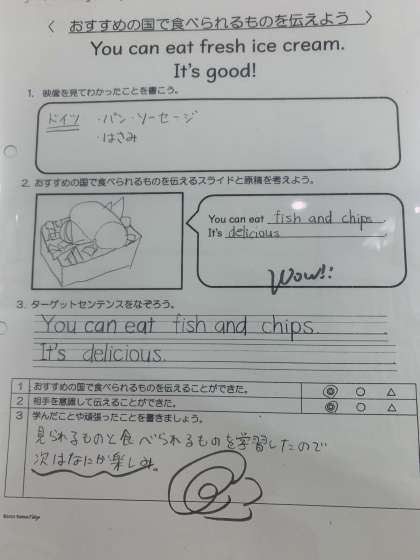 〈 おすすめの国で食べられるものを伝えよう 〉
You can eat fresh ice cream.
It's good!
1. 映像を見てわかったことを書こう。
ドイツ ・パン・ソーセージ
・はさみ
2. おすすめの国で食べられるものを伝えるスライドと原稿を考えよう。
You can eat fish and chips.
It's delicious.
Wow!!
3. ターゲットセンテンスをなぞろう。
You can eat fish and chips.
It's delicious.
1 おすすめの国で食べられるものを伝えることができた。 ◎ ○ △
2 相手を意識して伝えることができた。 ◎ ○ △
3 学んだことや頑張ったことを書きましょう。
見られるものと食べられるものを学習したので
次はなにか楽しみ。